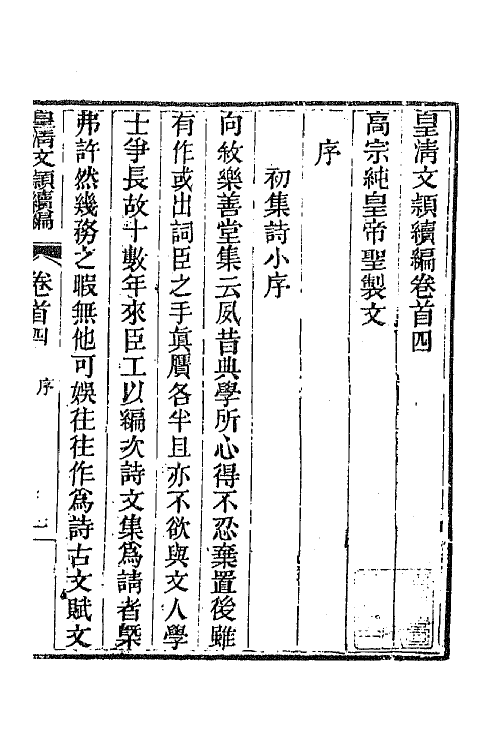 皇清文穎續編卷首四
高宗純皇帝聖製文
序
初集詩小序
向敘樂善堂集云夙昔典學所心得不忍棄置後雖
有作或出詞臣之手眞贗各半且亦不欲與文人學
士爭長故十數年來臣工以編次詩文集爲請者槩
弗許然幾務之暇無他可娛往往作爲詩古文賦文
皇清文穎續編
卷首四
序